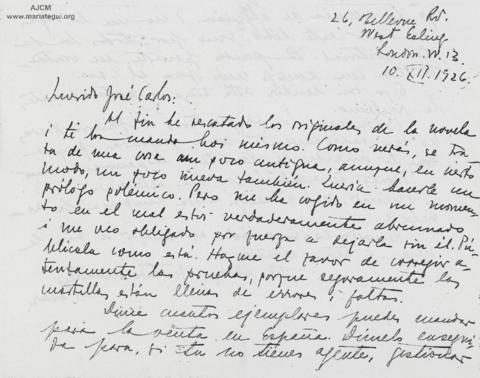 AJCM
www.mariategui.org
26, Bellevue Rd.
West Ealing
London. W. 13
10. XII. 1926.
Querido José Carlos:
Al fin he rescatado los originales de la novela
i te los mando hoi mismo. Como verás, se tra
ta de una cosa un poco antigua, aunque, en cierto
modo, un poco nueva también. Quería hacerle un
prólogo polémico. Pero me ha cogido en un momen
to en el cual estoi verdaderamente abrumado
i me veo obligado por fuerza a dejarla sin él. Pu
blícala como está. Hazme el favor de corregir a
tentamente las pruebas, porque seguramente las
cuartillas están llenas de errores i faltas.
Dime cuantos ejemplares puedes mandar
para la venta en España. Dímelo ensegui
da para, si tu no tienes agente, gestionar